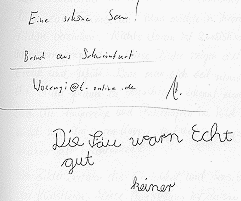 Eine schöne Sau!
Besuch aus Schweinfurt
@t-online.de
Die Säu warn Echt
gut